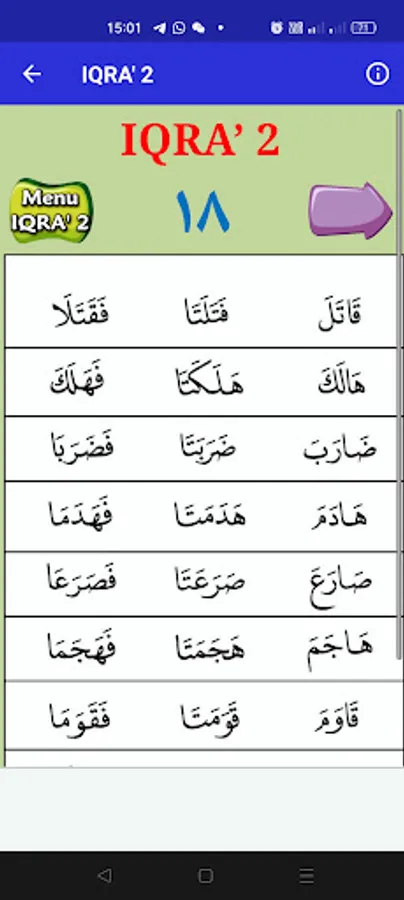 15:01
71
IQRA' 2
IQRA’ 2
Menu
IQRA' 2
١٨
قَاتَلَ فَتَلَتَا فَقَتَلَا
هَالَكَ هَلَكَتَا فَهَلَكَ
ضَارَبَ ضَرَبَتَا فَضَرَبَا
هَادَمَ هَدَمَتَا فَهَدَمَا
صَارَعَ صَرَعَتَا فَصَرَعَا
هَاجَمَ هَجَمَتَا فَهَجَمَا
قَاوَمَ قَوَمَتَا فَقَوَمَا